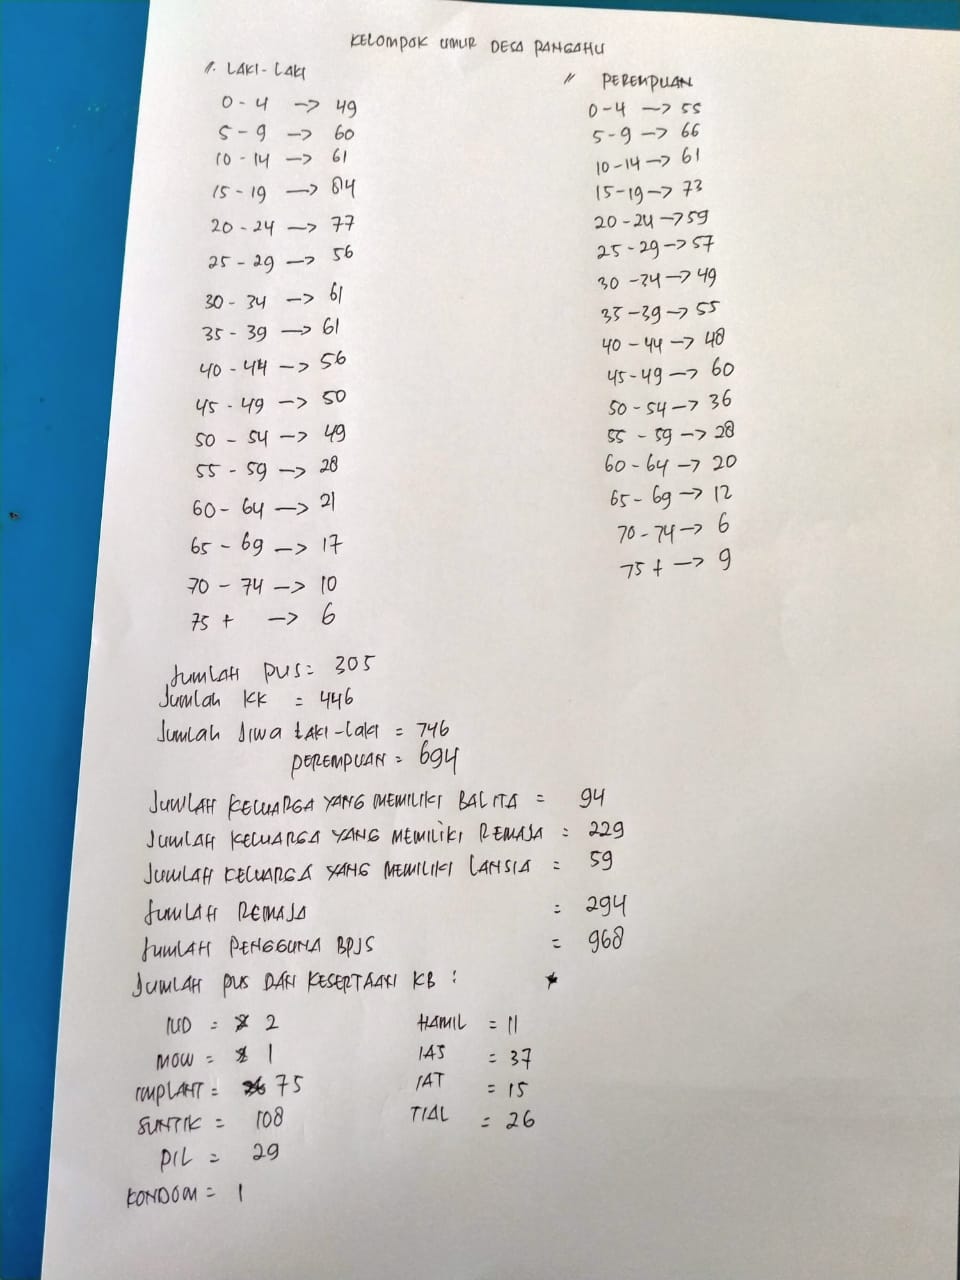 KELOMPOK UMUR DESA PANGAHU
// LAKI-LAKI
0 - 4 -> 49
5 - 9 -> 60
10 - 14 -> 61
15 - 19 -> 84
20 - 24 -> 77
25 - 29 -> 56
30 - 34 -> 61
35 - 39 -> 61
40 - 44 -> 56
45 - 49 -> 50
50 - 54 -> 49
55 - 59 -> 28
60 - 64 -> 21
65 - 69 -> 17
70 - 74 -> 10
75 + -> 6
// PEREMPUAN
0-4 -> 55
5-9 -> 66
10-14 -> 61
15-19 -> 73
20-24 -> 59
25-29 -> 57
30-34 -> 49
35-39 -> 55
40-44 -> 48
45-49 -> 60
50-54 -> 36
55-59 -> 28
60-64 -> 20
65-69 -> 12
70-74 -> 6
75 + -> 9
Jumlah PUS = 305
Jumlah KK = 446
Jumlah Jiwa Laki-laki = 746
PEREMPUAN = 694
JUMLAH KELUARGA YANG MEMILIKI BALITA = 94
JUMLAH KELUARGA YANG MEMILIKI REMAJA = 229
JUMLAH KELUARGA YANG MEMILIKI LANSIA = 59
JUMLAH REMAJA = 294
JUMLAH PENGGUNA BPJS = 968
JUMLAH PUS DAN KESERTAAN KB :
IUD = 2
MOW = 1
IMPLANT = 75
SUNTIK = 108
PIL = 29
KONDOM = 1
HAMIL = 11
IAS = 37
IAT = 15
TIAL = 26